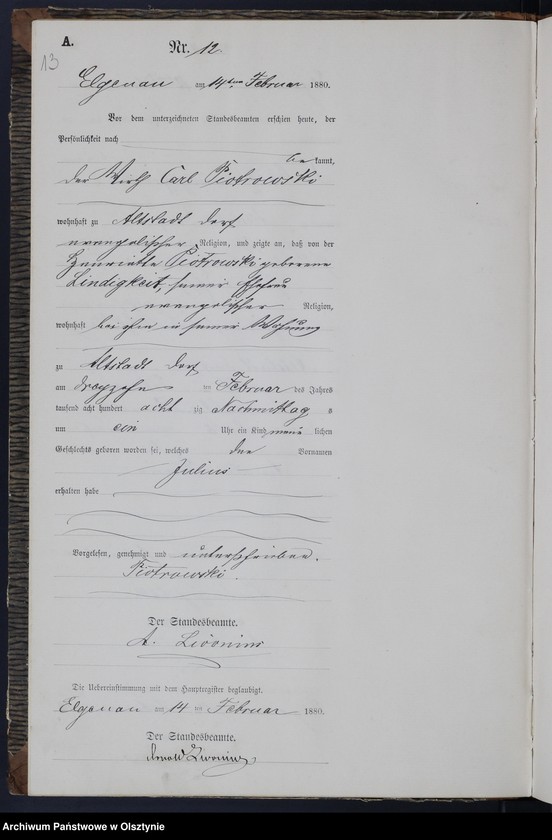 A.
Nr. 12
13
Elgenau am 14ten Februar 1880.
Vor dem unterzeichneten Standesbeamten erschien heute, der
Persönlichkeit nach
be kannt,
der Wirth Carl Piotrowski
wohnhaft zu Altstadt Dorf
evangelischer Religion, und zeigte an, daß von der
Henriette Piotrowski geborene
Lindigkeit, seiner Ehefrau
evangelischer Religion,
wohnhaft bei ihm in seiner Wohnung
zu Altstadt Dorf
am dreyzehn ten Februar des Jahres
tausend acht hundert acht zig Nachmittag s
um ein Uhr ein Kind männ lichen
Geschlechts geboren worden sei, welches den Vornamen
Julius
erhalten habe
Vorgelesen, genehmigt und unterschrieben.
Piotrowski.
Der Standesbeamte.
A. Livonius
Die Uebereinstimmung mit dem Hauptregister beglaubigt.
Elgenau am 14 ten Februar 1880.
Der Standesbeamte.
Arnold Livonius
Archiwum Państwowe w Olsztynie